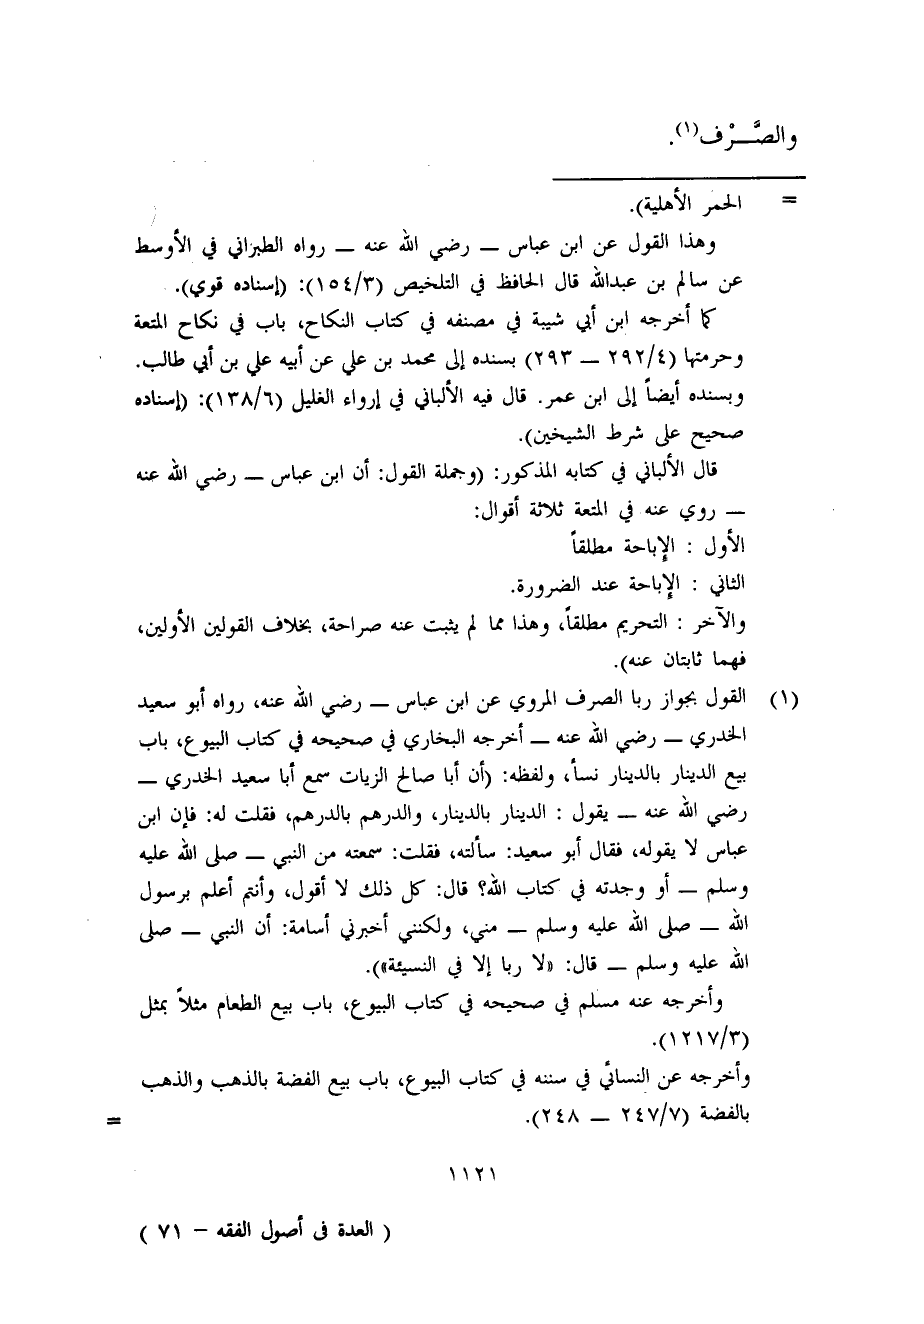 والصَّـــرْف(١).
= الحمر الأهلية).
وهذا القول عن ابن عباس ــ رضي الله عنه ــ رواه الطبراني في الأوسط
عن سالم بن عبدالله قال الحافظ في التلخيص (١٥٤/٣): (إسناده قوي).
كما أخرجه ابن أبي شيبة في مصنفه في كتاب النكاح، باب في نكاح المتعة
وحرمتها (٢٩٢/٤ ــ ٢٩٣) بسنده إلى محمد بن علي عن أبيه علي بن أبي طالب.
وبسنده أيضاً إلى ابن عمر. قال فيه الألباني في إرواء الغليل (١٣٨/٦): (إسناده
صحيح على شرط الشيخين).
قال الألباني في كتابه المذكور: (وجملة القول: أن ابن عباس ــ رضي الله عنه
ــ روي عنه في المتعة ثلاثة أقوال:
الأول : الإباحة مطلقاً
الثاني : الإباحة عند الضرورة.
والآخر : التحريم مطلقاً، وهذا مما لم يثبت عنه صراحة، بخلاف القولين الأولين،
فهما ثابتان عنه).
(١) القول بجواز ربا الصرف المروي عن ابن عباس ــ رضي الله عنه، رواه أبو سعيد
الخدري ــ رضي الله عنه ــ أخرجه البخاري في صحيحه في كتاب البيوع، باب
بيع الدينار بالدينار نسأ، ولفظه: (أن أبا صالح الزيات سمع أبا سعيد الخدري ــ
رضي الله عنه ــ يقول : الدينار بالدينار، والدرهم بالدرهم، فقلت له: فإن ابن
عباس لا يقوله، فقال أبو سعيد: سألته، فقلت: سمعته من النبي ــ صلى الله عليه
وسلم ــ أو وجدته في كتاب الله؟ قال: كل ذلك لا أقول، وأنتم أعلم برسول
الله ــ صلى الله عليه وسلم ــ مني، ولكنني أخبرني أسامة: أن النبي ــ صلى
الله عليه وسلم ــ قال: «لا ربا إلا في النسيئة»).
وأخرجه عنه مسلم في صحيحه في كتاب البيوع، باب بيع الطعام مثلاً بمثل
(١٢١٧/٣).
وأخرجه عن النسائي في سننه في كتاب البيوع، باب بيع الفضة بالذهب والذهب
بالفضة (٢٤٧/٧ ــ ٢٤٨). =
١١٢١
( العدة فى أصول الفقه – ٧١ )